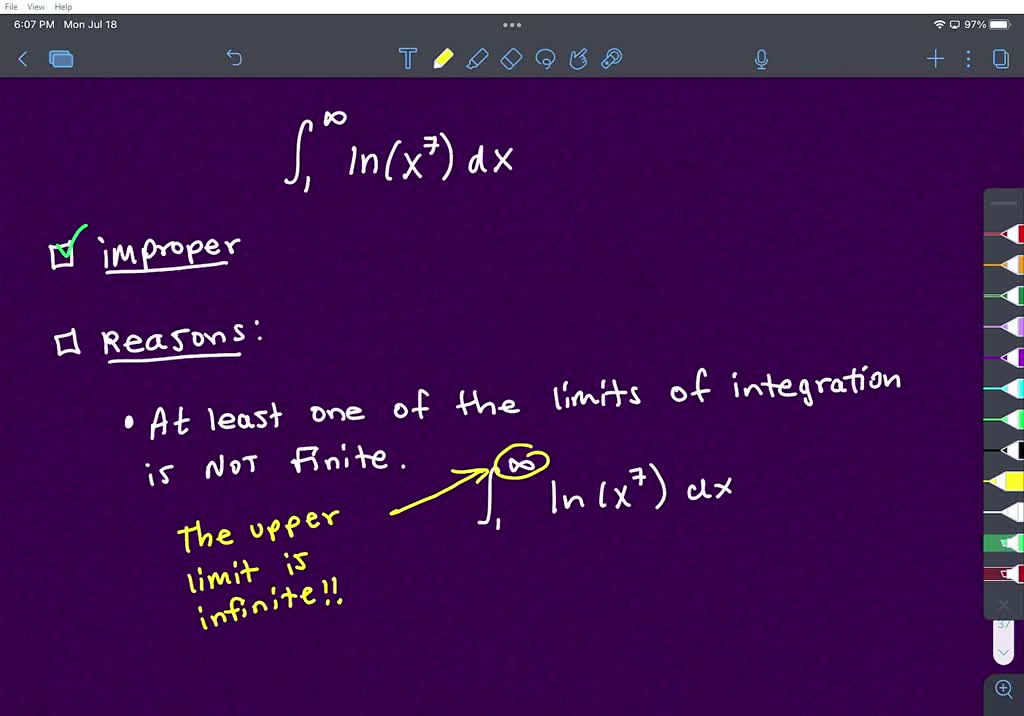 File View Help
6:07 PM Mon Jul 18 97%
∫₁^∞ ln(x⁷) dx
improper
Reasons:
• At least one of the limits of integration
is NOT finite.
∫₁^∞ ln(x⁷) dx
The upper
limit is
infinite!!
37